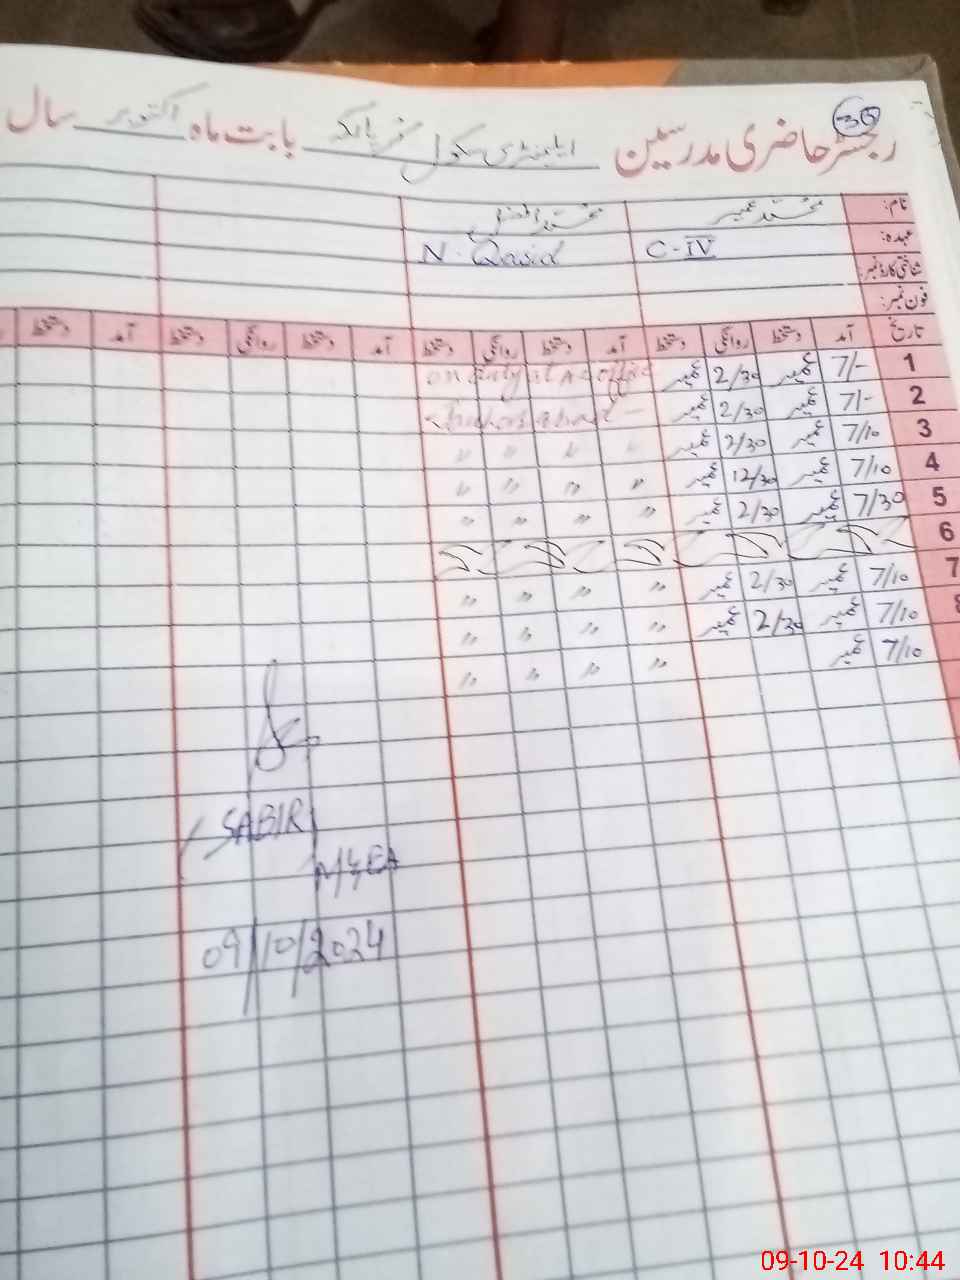 36
رجسٹر حاضری مدرسین ایلیمنٹری سکول بابت ماہ اکتوبر سال
نام: محمد عمیر محمد افضل
عہدہ: C-IV N. Qasid
شناختی کارڈ نمبر:
فون نمبر:
تاریخ آمد دستخط روانگی دستخط آمد دستخط روانگی دستخط آمد دستخط روانگی دستخط آمد دستخط
1 7/- عمیر 2/30 عمیر on duty at A office
2 7/- عمیر 2/30 عمیر
3 7/10 عمیر 2/30 عمیر " " " "
4 7/10 عمیر 12/30 عمیر " " " "
5 7/30 عمیر 2/30 عمیر " " " "
6
7 7/10 عمیر 2/30 عمیر " " " "
8 7/10 عمیر 2/30 عمیر " " " "
7/10 عمیر " " " "
SABIR
M&EA
09/10/2024
09-10-24 10:44